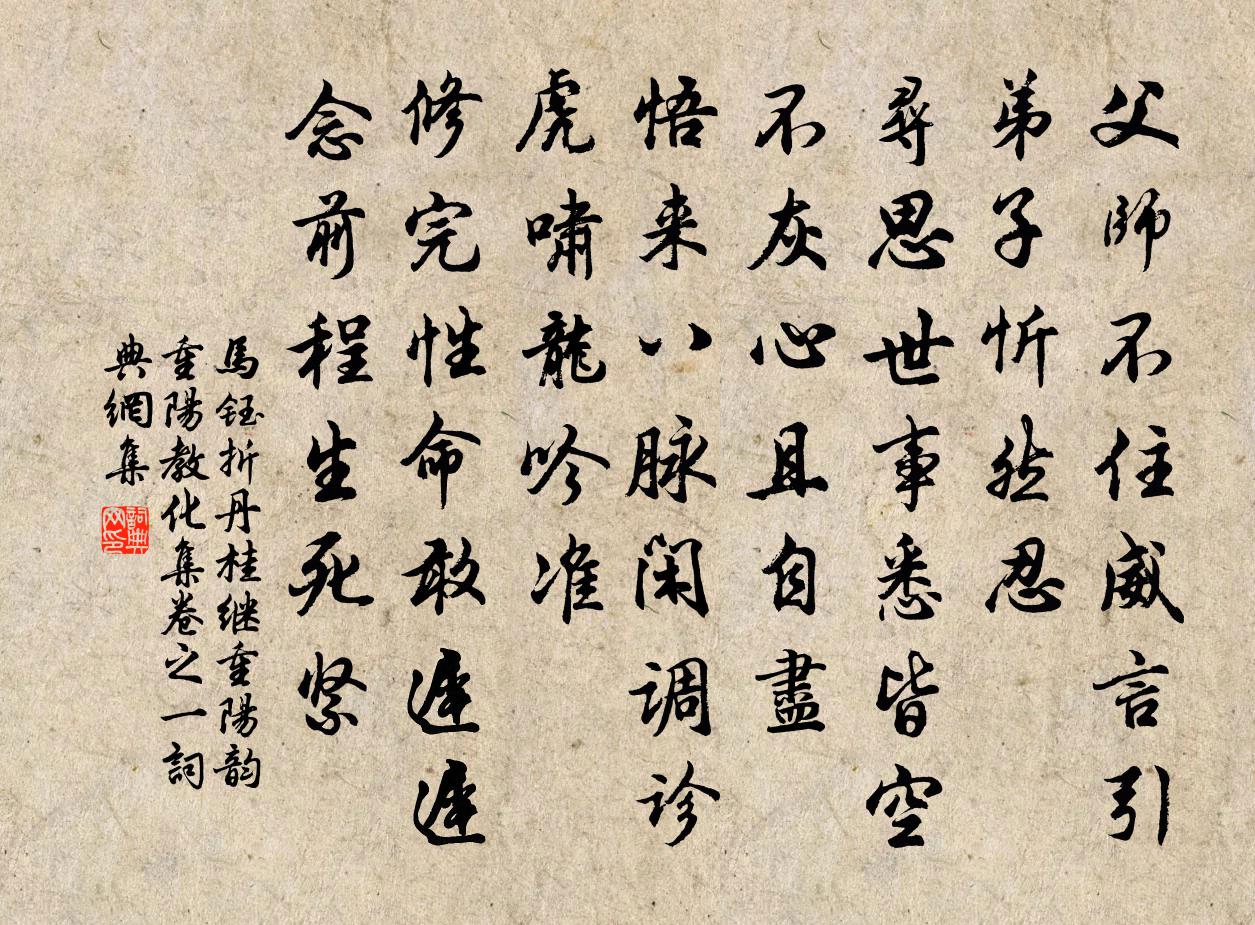 父師不住威言引
弟子忻然忍
尋思世事悉皆空
不灰心且自盡
悟来八脉闲調診
虎嘯龍吟准
修完性命敢遲遲
念前程生死緊
馬鈺折丹桂继重陽韵
重陽教化集卷之一詞
典網集
詞典网印